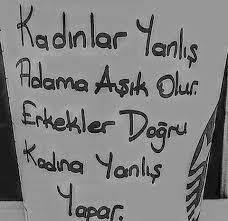 Kadınlar Yanlış
Adama Aşık Olur.
Erkekler Doğru
Kadına Yanlış
Yapar.